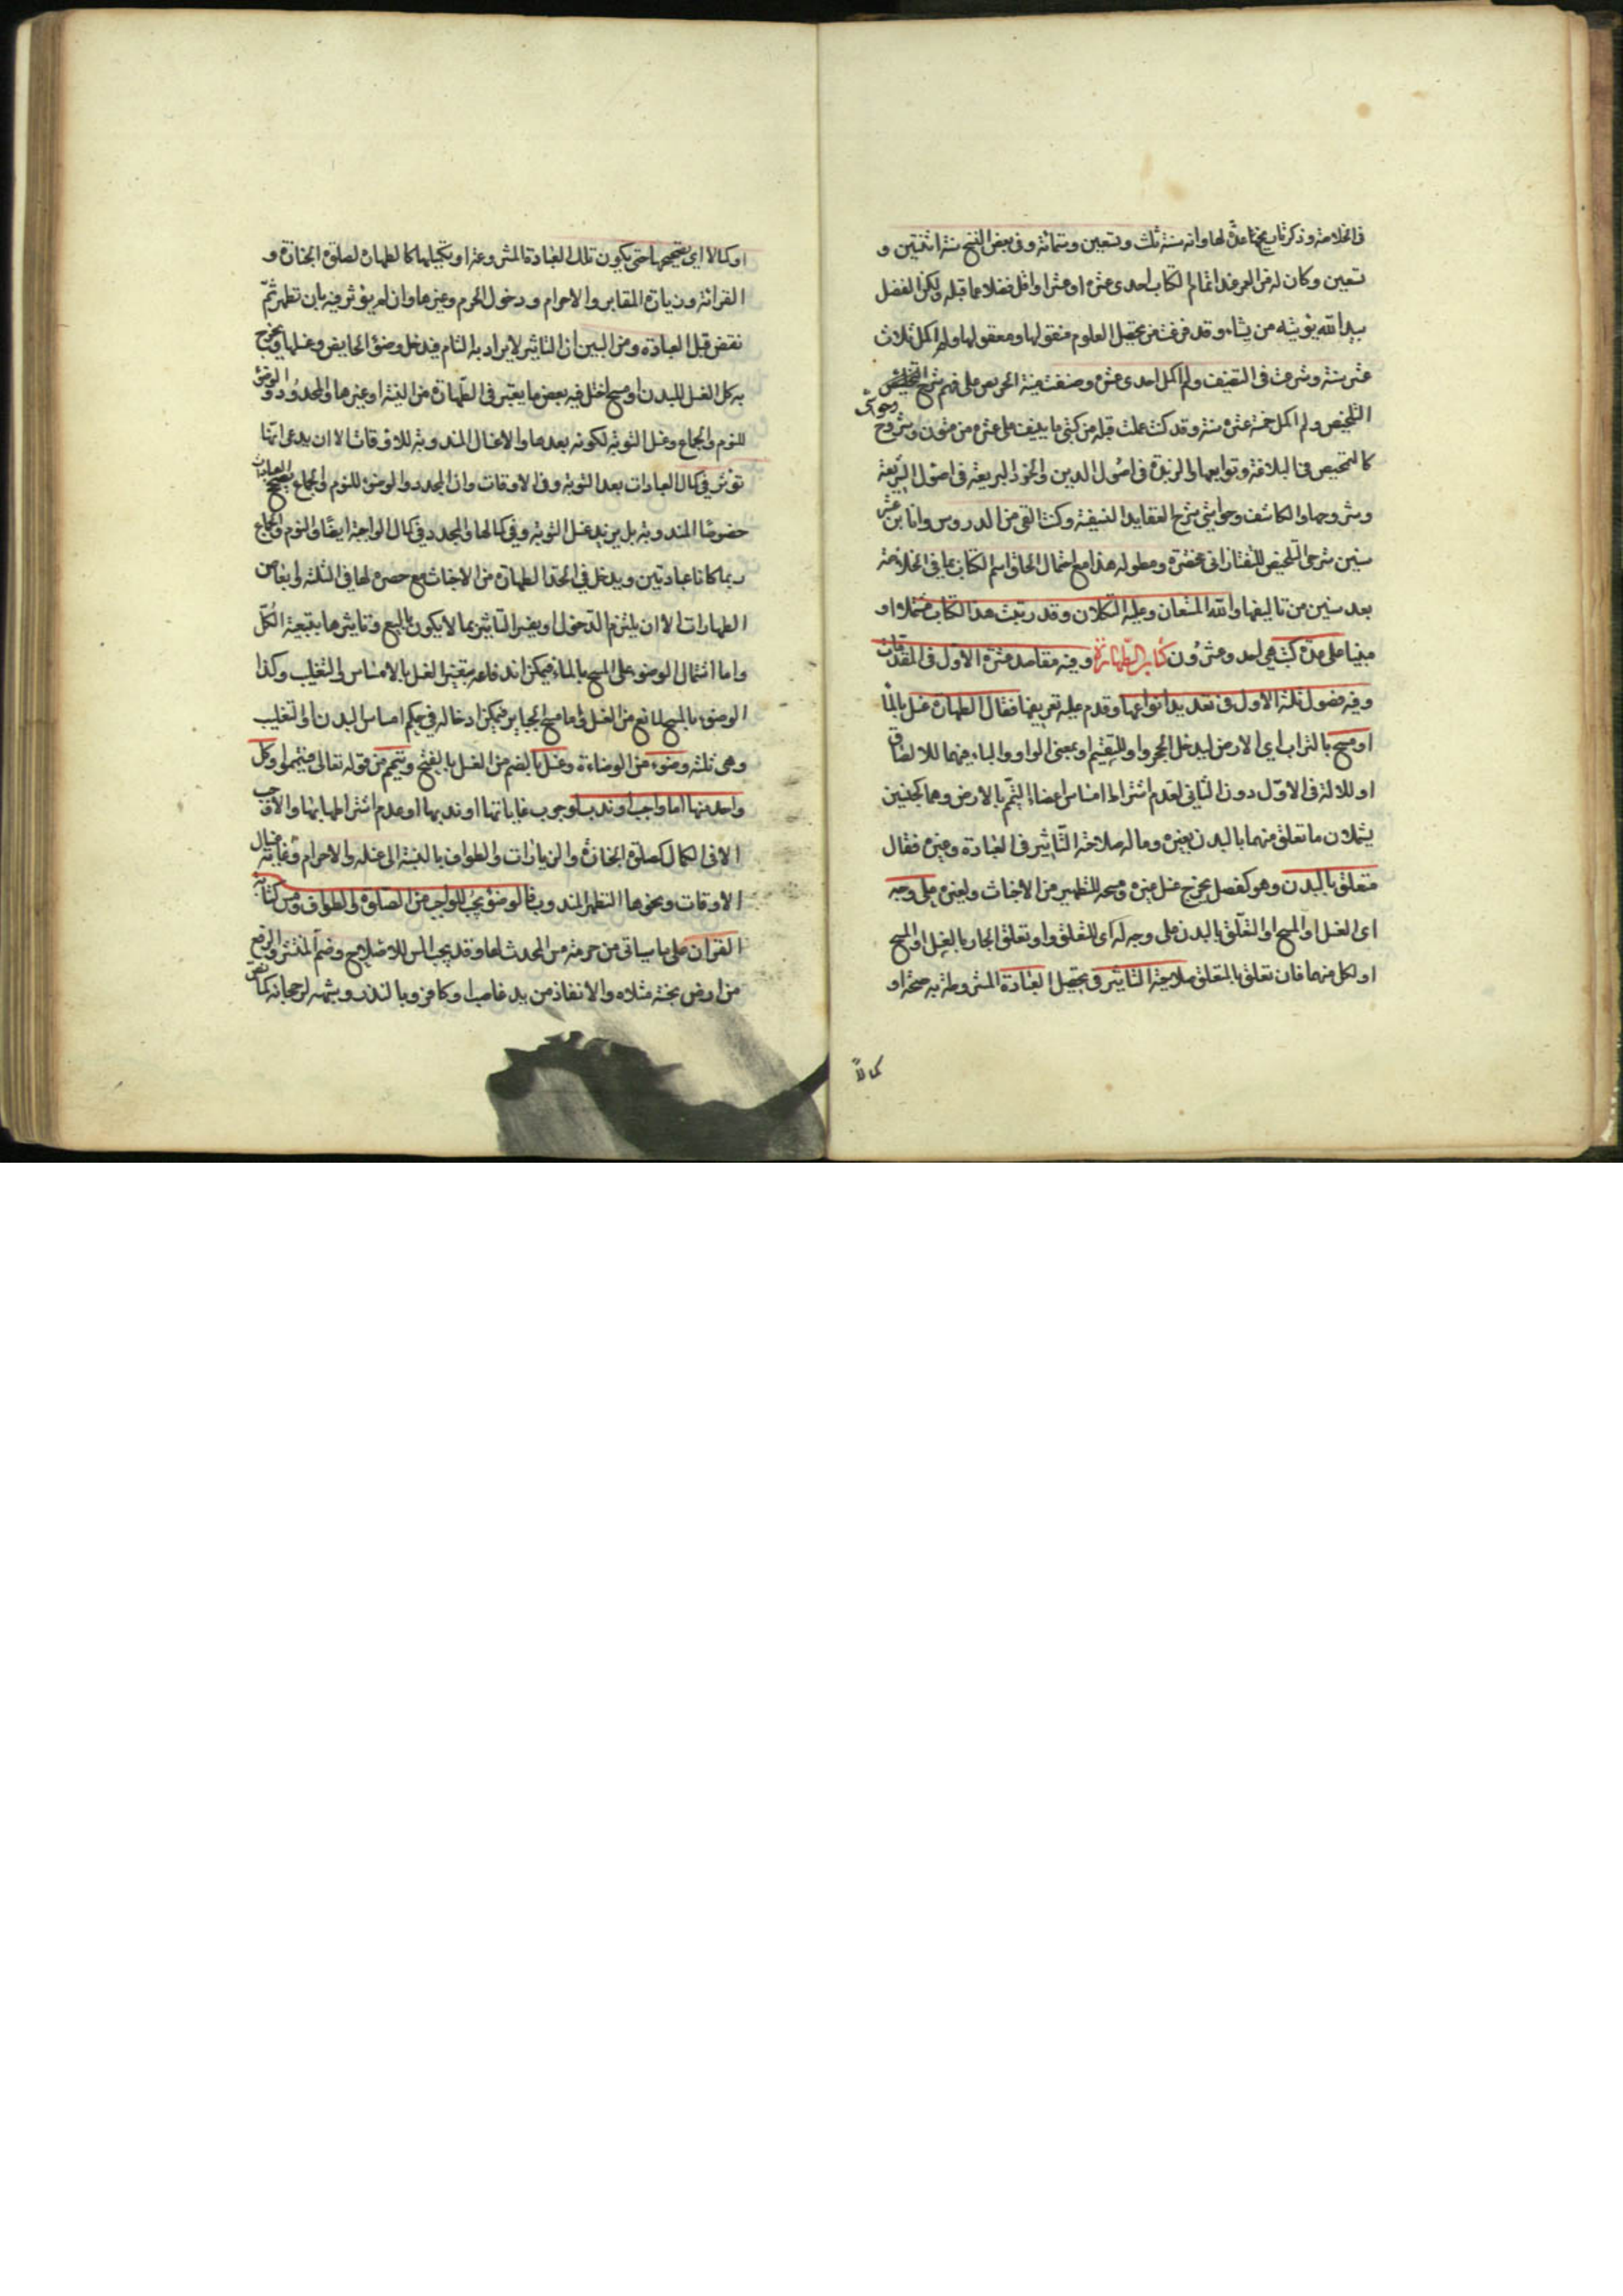 في الخلاصة وذكر تاريخها عدّ لها وانه سنة ثلث وتسعين وستمائة وفي بعض النسخ سنة اثنتين و
تسعين وكان له من العمر عند اتمام الكتاب احدى عشرة او عشرا واقل فضلا عما قبله ولكن الفضل
بيد الله يؤتيه من يشاء وقد فرغت من تحصيل العلوم منقولها ومعقولها ولم اكمل ثلاث
عشرة سنة وشرعت في التصنيف ولم اكمل احدى عشرة وصنفت منية الحريص على فهم شرح
التلخيص ولم اكمل خمسة عشرة سنة وقد كنت عملت قبله من كتبي ما ينيف على عشرة من متون وشروح وحواشي
كالتلخيص في البلاغة وتوابعها والزبدة في اصول الدين والخود البريعة في اصول الشريعة
وشروحها والكاشف وحواشي شرح العقايد النسفية وكنت القي من الدروس وانا ابن عشر
سنين شرحي التلخيص للتفتازاني مختصره ومطوله هذا مع احتمال الحاق اسم الكتاب بما في الخلاصة
بعد سنين من تاليفها والله المستعان وعليه التكلان وقد رتبت هذا الكتاب مشتملا او
مبنيا على عدة كتب هي احد وعشرون كتاب الطهارة وفيه مقاصد عشرة الاول في المقدمات
وفيه فصول ثلثة الاول في تعديد انواعها وقدم عليه تعريفها فقال الطهارة غسل بالماء
او مسح بالتراب اي الارض ليدخل الحجر واو للتقسيم او بمعنى الواو والباء فيهما للالصاق
او للالة في الاول دون الثاني لعدم اشتراط امساس اعضاء التيمم بالارض وهما كجنسين
يشملان ما تعلق منهما بالبدن بغيره وما له صلاحية التأثير في العبادة وغيره فقال
متعلق بالبدن وهو كفصل يخرج غسل غيره ومسحه للتطهير من الاخباث ولغيره على وجه
اى الغسل او المسح او التعلق بالبدن على وجه له اى للتعلق واو تعلق الجار بالغسل او المسح
او لكل منهما فان تعلق بالمتعلق صلاحية التأثير في تحصيل العبادة المشروطة به صحة او
كمالاً
او كمالا اي تصحيحها حتى يكون تلك العبادة المشروعة او تكميلها كالطهارة لصلوة الجنازة و
القرائة وزيارة المقابر والاحرام ودخول الحرم وغيرها وان لم يؤثر فيه بان تطهر ثمّ
نقض قبل العبادة ومن البين ان التاثير لا يراد به التام فيدخل وضوء الحايض وغسلها ويخرج
به كل الغسل للبدن او مسح اختل فيه بعض ما يعتبر في الطهارة من النية او غيرها والمجدد والوضوء
للنوم والجماع وغسل التوبة لكونه بعدها والاغسال المندوبة للاوقات الا ان يدعى انها
تؤثر في كمال العبادات بعد التوبة وفي الاوقات وان المجدد والوضوء للنوم والجماع يصحح العبادات
خصوصًا المندوبة بل يزيد غسل التوبة وفي كمالها والمجدد في كمال الواجبة ايضًا والنوم والجماع
ربما كانا عبادتين ويدخل في الحد الطهارة من الاخباث مع حصره لها في الثلثة وابعاض
الطهارات الا ان يلتزم الدخول او يفسر التاثير بما لا يكون بالتبع وتاثيرها بتبعية الكلّ
واما اشتمال الوضوء على المسح بالماء فيمكن اندفاعه بتفسير الغسل بالامساس والتغليب وكذا
الوضوء بالمسح لمانع من الغسل واما مسح الجباير فيمكن ادخاله في حكم امساس البدن او التغليب
وهي ثلثة وضوء من الوضاءة وغسل بالضم من الغسل بالفتح وتيمم من قوله تعالى فتيمموا وكل
واحد منها اما واجب او ندب لوجوب غاياتها او ندبها او عدم اشتراطها بها والاوجب
الا في الكمال كصلوة الجنازة والزيارات والطواف بالنسبة الى غسله والاحرام وغايته
الاوقات ونحوها التطهر المندوب فالوضوء يجب للواجب من الصلوة والطواف ومس كتابة
القرآن على ما سياتي من حرمة مس المحدث لها وقد يجب المس للاصلاح وضم المنتثر والرفع
من ارض نجسة مثلا والانقاذ من يد غاصب او كافر وبالنذر وشبهه لرجحانه كما